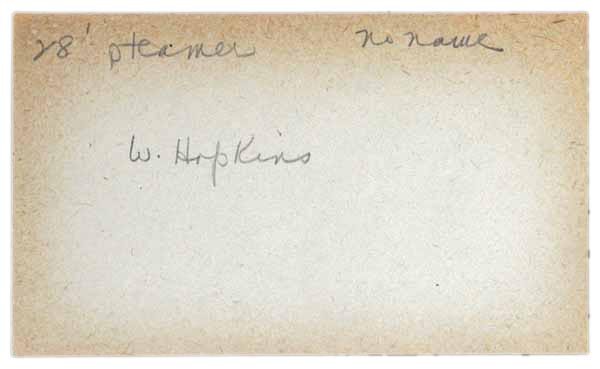 28' steamer no name
W. Hopkins